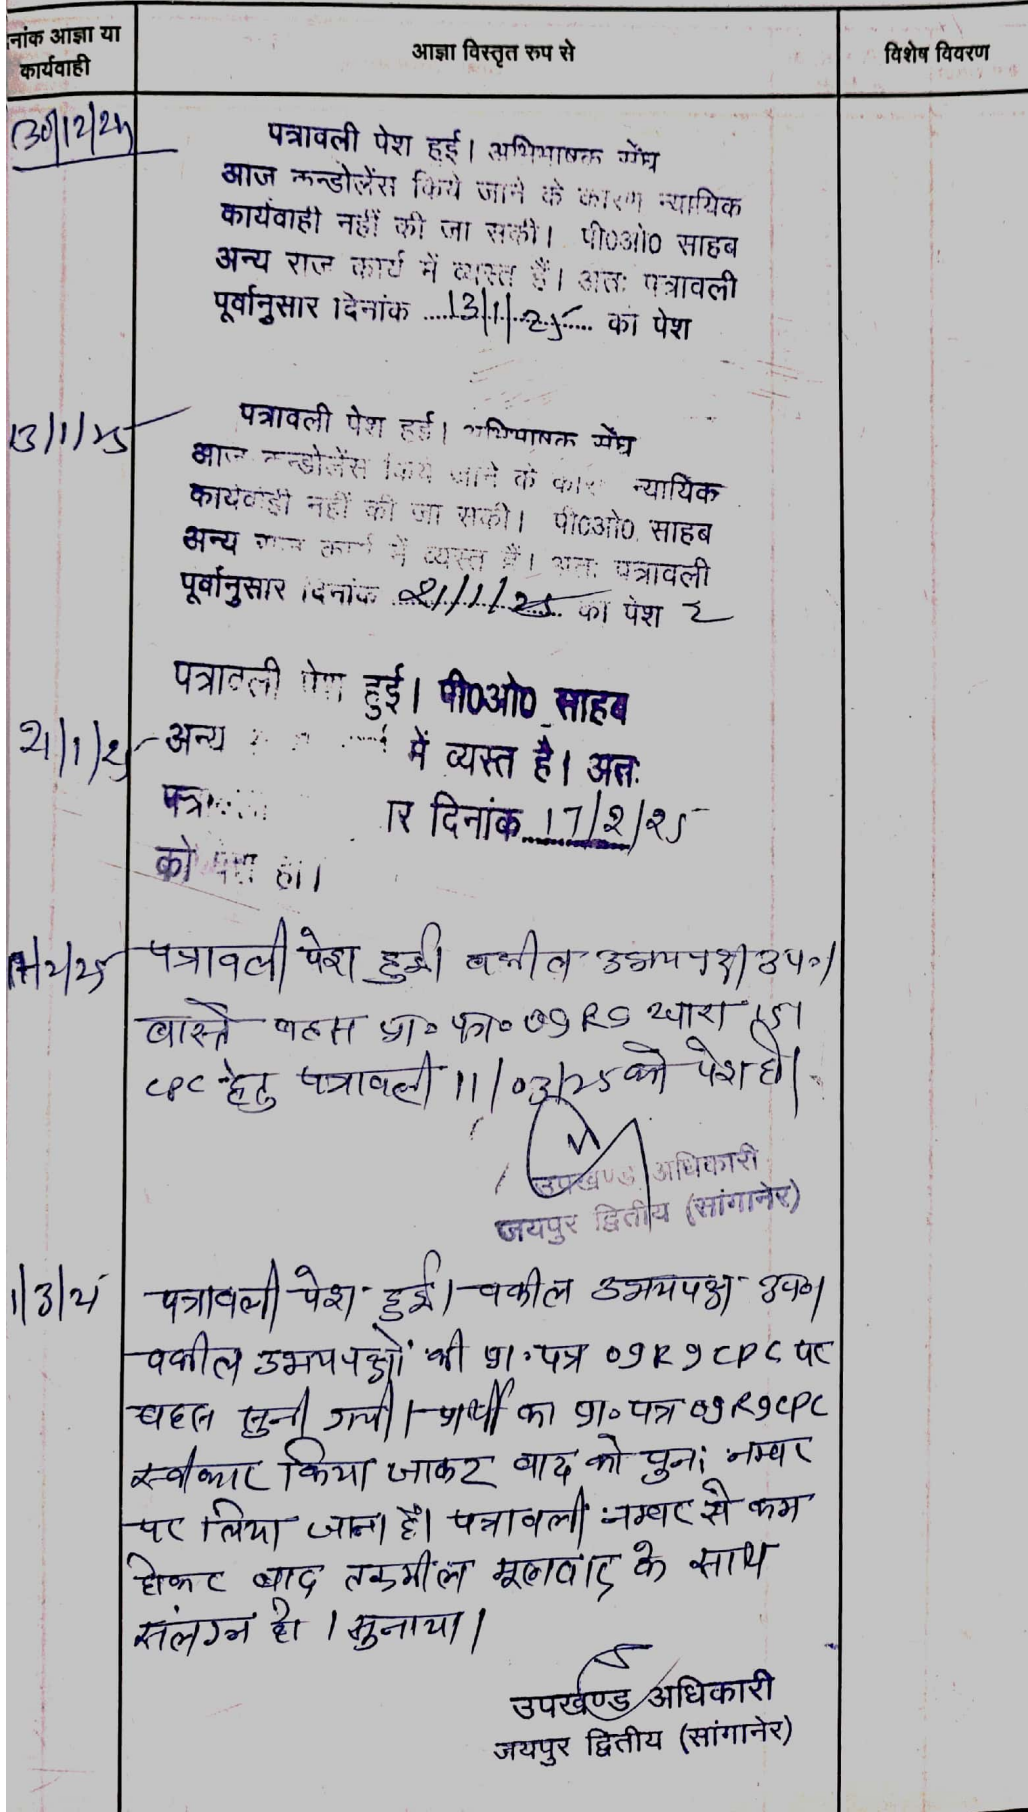 नांक आज्ञा या
कार्यवाही
आज्ञा विस्तृत रुप से
विशेष विवरण
30/12/24
पत्रावली पेश हुई। अभिभाषक संघ
आज कन्डोलेंस किये जाने के कारण न्यायिक
कार्यवाही नहीं की जा सकी। पी0ओ0 साहब
अन्य राज कार्य में व्यस्त हैं। अतः पत्रावली
पूर्वानुसार दिनांक ....13/1/25.... को पेश
13/1/25
पत्रावली पेश हुई। अभिभाषक संघ
आज कन्डोलेंस किये जाने के कारण न्यायिक
कार्यवाही नहीं की जा सकी। पी0ओ0 साहब
अन्य राज कार्य में व्यस्त हैं। अतः पत्रावली
पूर्वानुसार दिनांक 21/1/25 को पेश
पत्रावली पेश हुई। पी0ओ0 साहब
21/1/25
अन्य में व्यस्त है। अतः
दिनांक 17/2/25
को पेश हो।
17/2/25
पत्रावली पेश हुई। वकील उभयपक्ष उप०।
वास्ते बहस प्रा० पत्र० O9R9 धारा 151
CPC हेतु पत्रावली 11/03/25 को पेश हो।
उपखण्ड अधिकारी
जयपुर द्वितीय (सांगानेर)
1/3/25
पत्रावली पेश हुई। वकील उभयपक्ष उप०।
वकील उभयपक्षों की प्रा.पत्र O9R9CPC पर
बहस सुनी गयी। प्रार्थी का प्रा० पत्र O9R9CPC
स्वीकार किया जाकर वाद को पुनः नम्बर
पर लिया जाता है। पत्रावली नम्बर से कम
होकर बाद तकमील मूलवाद के साथ
संलग्न हो। सुनाया।
उपखण्ड अधिकारी
जयपुर द्वितीय (सांगानेर)